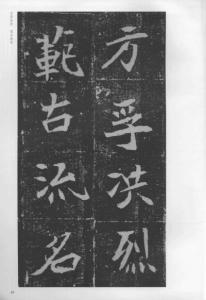 方孚洪烈
範古流名